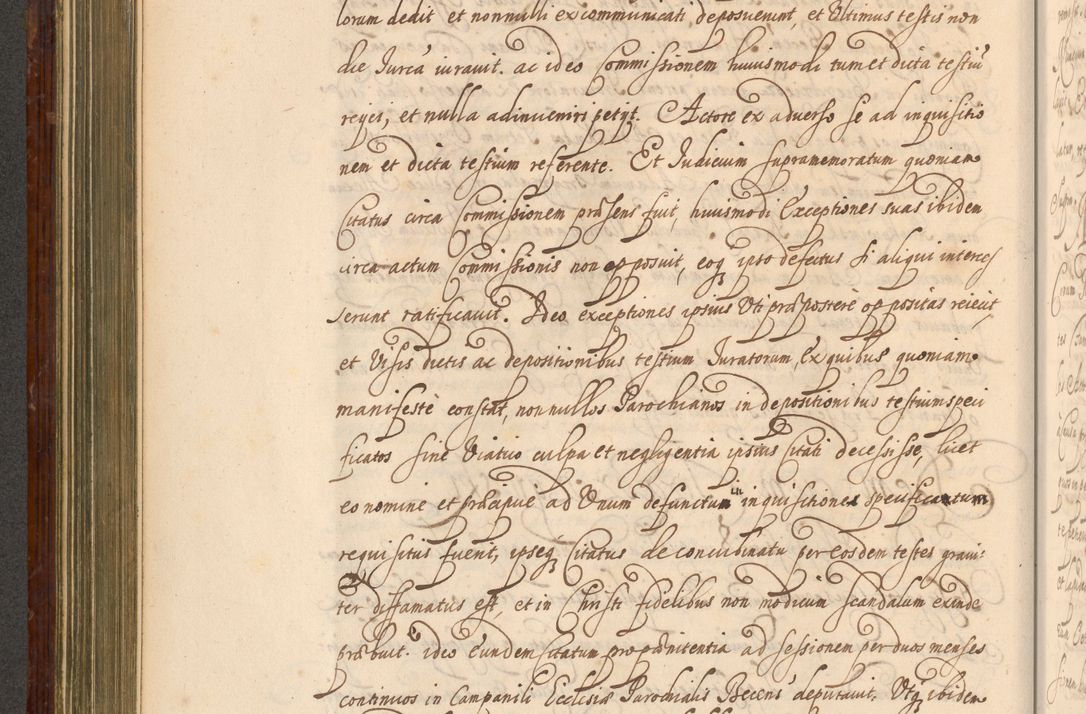 lorum dedit et nonnulli excommunicati deposuerunt, et Ultimus testis non
die Jurca iuravit. ac ideo Commissionem huiusmodi tum et dicta testiũ
rejici, et nulla adinveniri petijt. Actore ex adverso se ad inquisitio
nem et dicta testium referente. Et Judicium supramemoratum quoniam
Citatus circa Commissionem præsens fuit, huiusmodi Exceptiones suas ibidem
circa actum Commissionis non opposuit, eoq ipso defectus si aliqui interces
serunt ratificavit. Ideo exceptiones ipsius Uti præpostere oppositas reiecit,
et Visis dictis ac depositionibus testium Juratorum, ex quibus quoniam
manifestè constat, nonnullos Parochianos in depositionibus testium speci
ficatos sine Viatico culpa et negligentia ipsius Citati decessisse, licet
eo nomine et præcipuè ad Unum defunctum in inquisitione specificatum
requisitus fuerit, ipseq Citatus de concubinatu per eosdem testes gravi:
ter diffamatus est, et in Christi fidelibus non modicum scandalum exinde
præbuit. ideo eundem Citatum pro pœnitentia ad sessionem per duos menses
continuos in Campanili Ecclesiæ Parochialis Becens deputavit. Utq ibidem